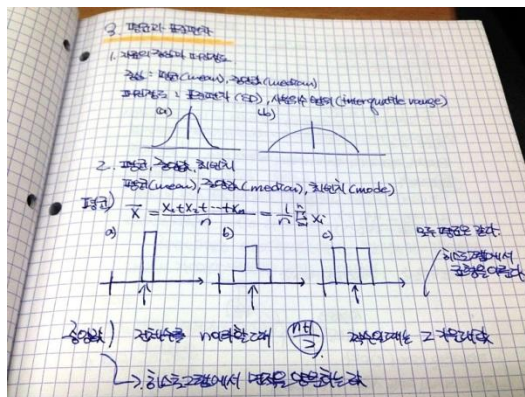 3. 평균과 표준편차
1. 자료의 중심과 퍼진정도
중심 : 평균(mean), 중앙값(median)
퍼진정도 : 표준편차 (SD), 사분위수 범위 (interquartile range)
(a) (b)
2. 평균, 중앙값, 최빈치
평균(mean), 중앙값(median), 최빈치(mode)
평균) x̄ = x₁+x₂+…+xₙ / n = 1/n Σ xᵢ
a) b) c)
모두 평균은 같다.
히스토그램에서
균형을 이룬다
중앙값) 전체수를 n이라 할 때 n+1/2 짝수일 때는 그 가운데값
→ 히스토그램에서 면적을 양분하는 값